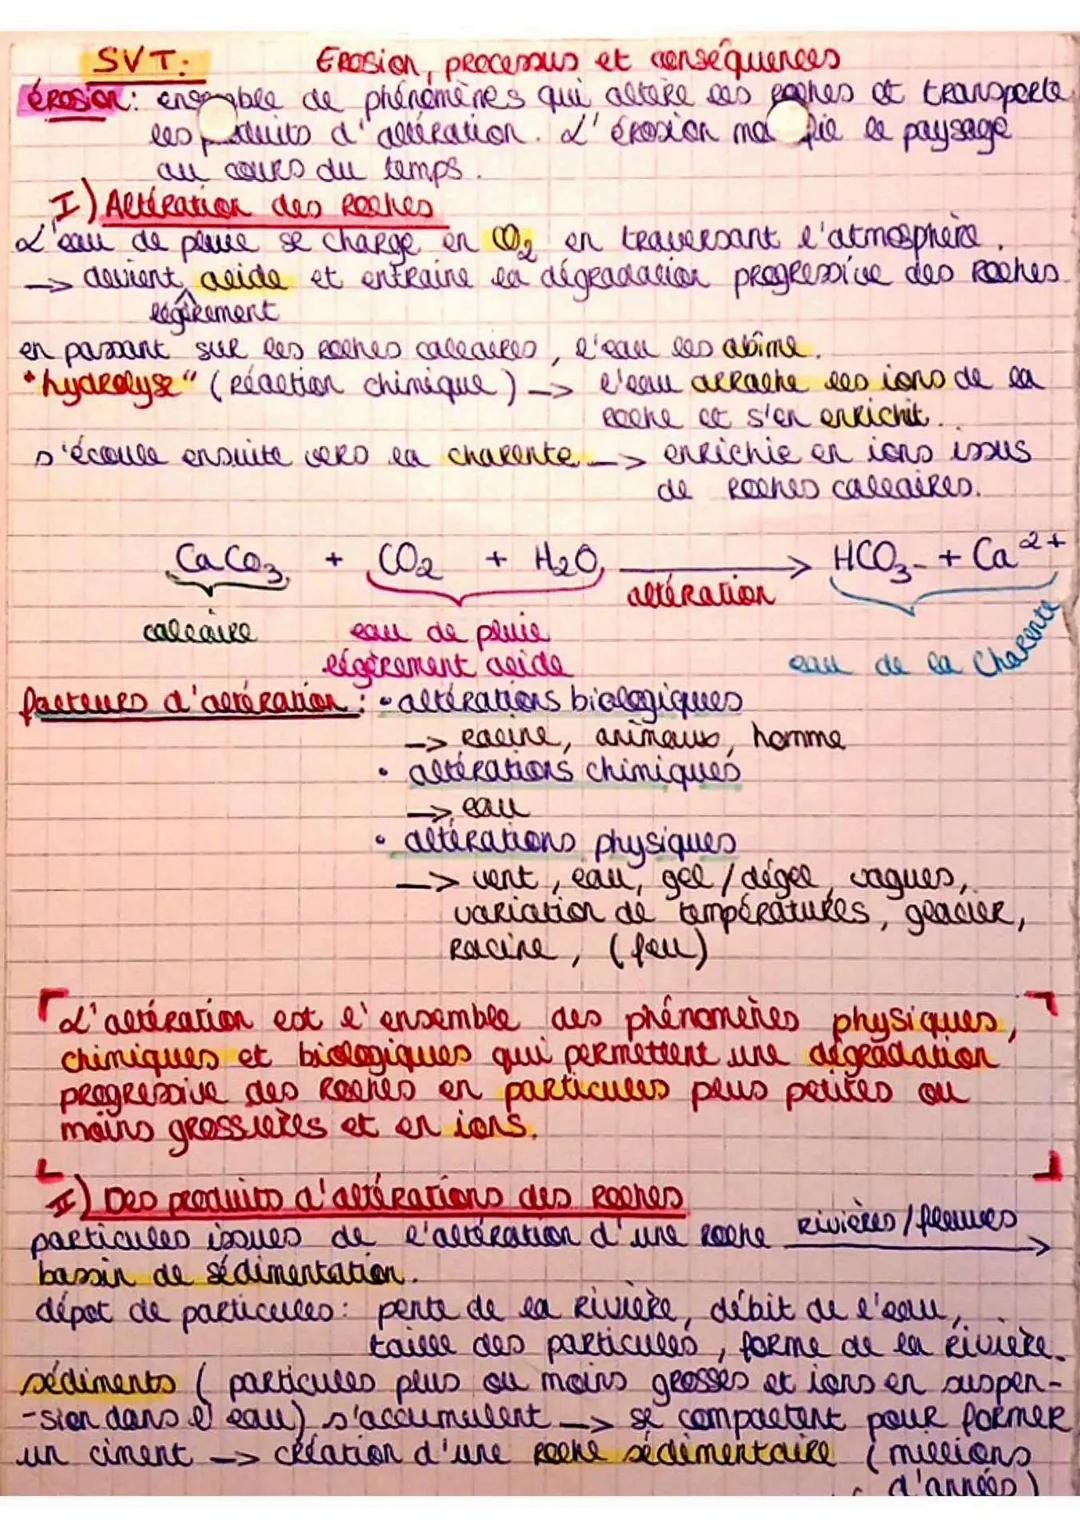 SVT: Erosion, processus et conséquences
érosion: ensemble de phénomènes qui altère les roches et transporte
les produits d'altération. L'érosion modifie le paysage
au cours du temps.
I) Altération des Roches
L'eau de pluie se charge en CO2 en traversant l'atmosphère.
-> devient acide et entraine la dégradation progressive des Roches
légèrement
en passant sur les roches calcaires, l'eau les abîme.
"hydrolyse" (Réaction chimique) -> l'eau arrache les ions de la
roche et s'en enrichit.
s'écoule ensuite vers la charente -> enrichie en ions issus
de Roches calcaires.
CaCO3 + CO2 + H2O -> HCO3- + Ca 2+
altération
calcaire eau de pluie
légèrement acide eau de la Charente
facteurs d'altération: • altérations biologiques
-> racine, animaux, homme
• altérations chimiques
-> eau
• altérations physiques
-> vent, eau, gel / dégel, vagues,
variation de températures, glacier,
Racine, (feu)
L'altération est l'ensemble des phénomènes physiques,
chimiques et biologiques qui permettent une dégradation
progressive des Roches en particules plus petites ou
moins grossières et en ions.
II) Des produits d'altérations des Roches
particules issues de l'altération d'une roche rivières / fleuves ->
bassin de sédimentation.
dépot de particules: pente de la Rivière, débit de l'eau,
taille des particules, forme de la rivière.
sédiments (particules plus ou moins grosses et ions en suspen-
-sion dans l'eau) s'accumulent -> se compactent pour former
un ciment -> création d'une roche sédimentaire (millions
d'années)